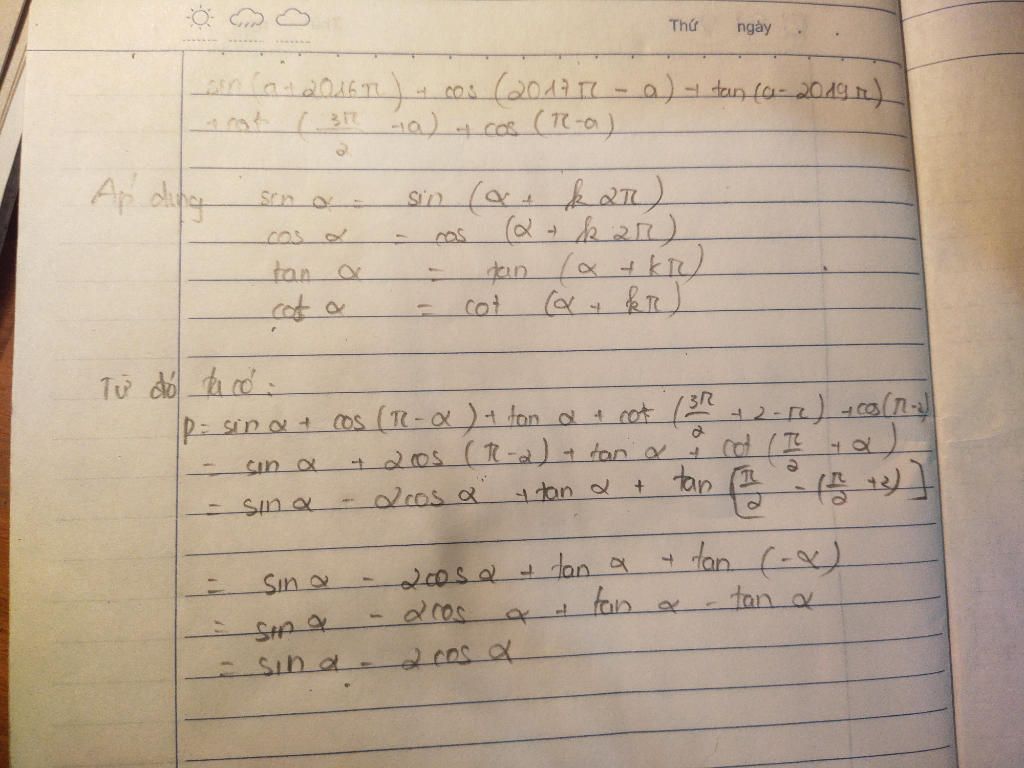 Thứ ngày . .
sin(a+2016π) + cos (2017π - a) + tan(a-2019π)
+cot (3π/2 +a) + cos (π-a)
Áp dụng sin α = sin (α + k2π)
cos α = cos (α + k2π)
tan α = tan (α + kπ)
cot α = cot (α + kπ)
Từ đó ta có:
P = sin α + cos (π-α) + tan α + cot (3π/2 + 2 - π) + cos(π-2)
= sin α + 2cos (π-2) + tan α + cot (π/2 + α)
= sin α - 2cos α + tan α + tan [π/2 - (π/2 +2)]
= sin α - 2cos α + tan α + tan (-α)
= sin α - 2cos α + tan α - tan α
= sin α - 2cos α